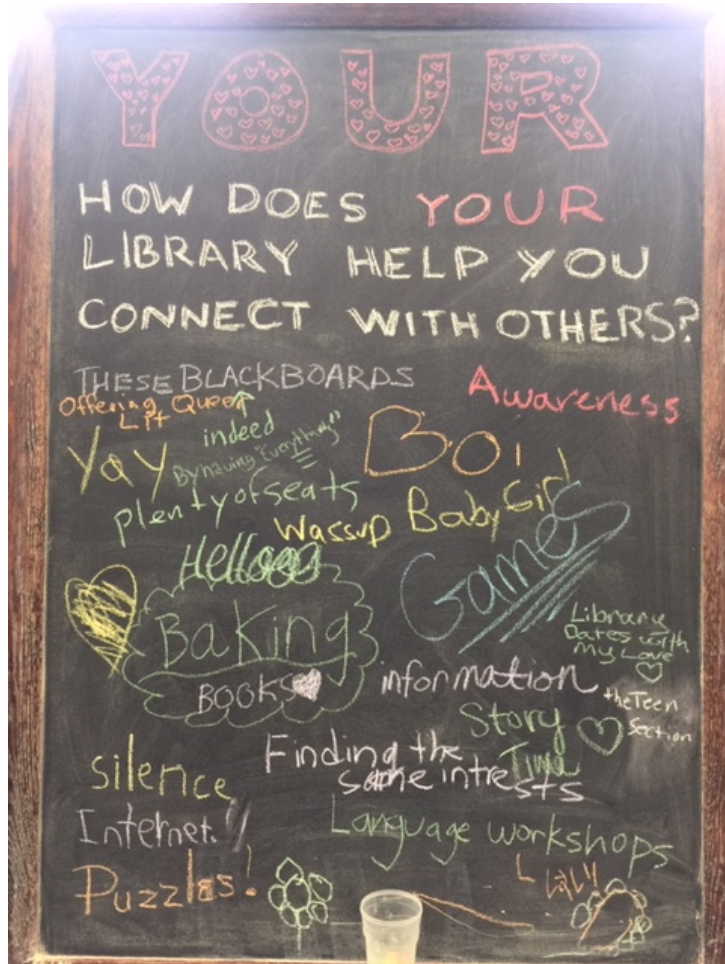 YOUR
HOW DOES YOUR
LIBRARY HELP YOU
CONNECT WITH OTHERS?
THESE BLACKBOARDS
Awareness
Offering Queer
Lit
indeed
Yay
By having "Everything"
Boi
plenty of seats
Wassup Baby Girl
Hellooo
Games
Baking
BOOKS
Library
Dates with
My Love
information
the Teen
Section
Story
Time
Finding the
same intrests
silence
Internet!!
Language workshops
Puzzles!